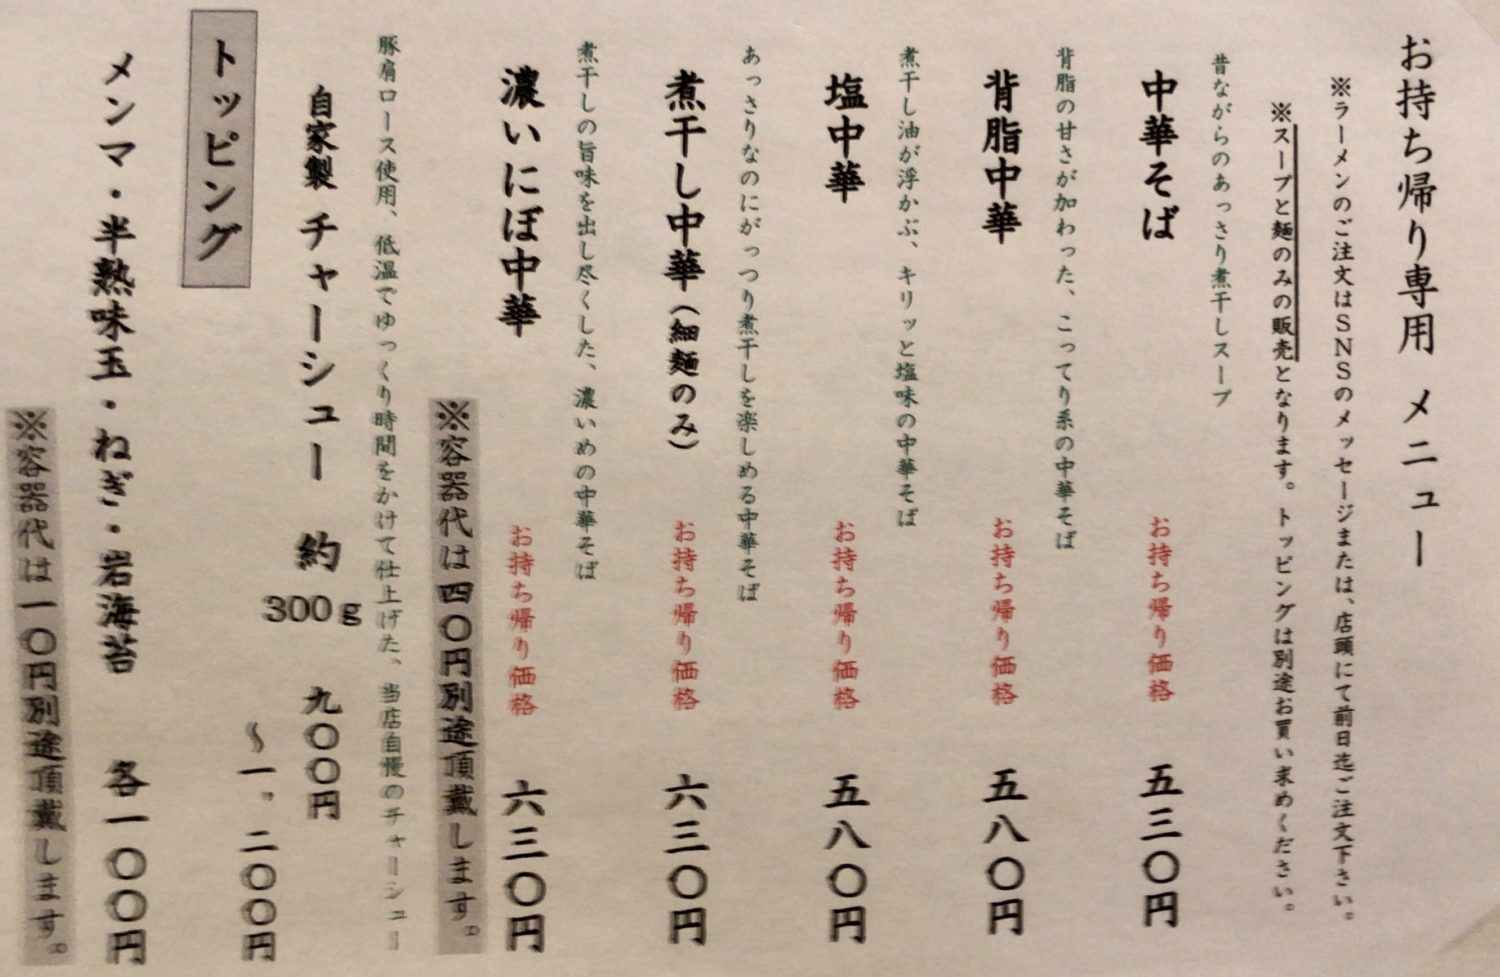 お持ち帰り専用 メニュー
※ラーメンのご注文はSNSのメッセージまたは、店頭にて前日迄ご注文下さい。
※スープと麺のみの販売となります。トッピングは別途お買い求めください。
昔ながらのあっさり煮干しスープ
中華そば お持ち帰り価格 五三〇円
背脂の甘さが加わった、こってり系の中華そば
背脂中華 お持ち帰り価格 五八〇円
煮干し油が浮かぶ、キリッと塩味の中華そば
塩中華 お持ち帰り価格 五八〇円
あっさりなのにがっつり煮干しを楽しめる中華そば
煮干し中華(細麺のみ) お持ち帰り価格 六三〇円
煮干しの旨味を出し尽くした、濃いめの中華そば
濃いにぼ中華 お持ち帰り価格 六三〇円
※容器代は四〇円別途頂戴します。
豚肩ロース使用、低温でゆっくり時間をかけて仕上げた、当店自慢のチャーシュー
自家製 チャーシュー 約300g 九〇〇円
〜一，二〇〇円
トッピング
メンマ・半熟味玉・ねぎ・岩海苔 各一〇〇円
※容器代は一〇円別途頂戴します。